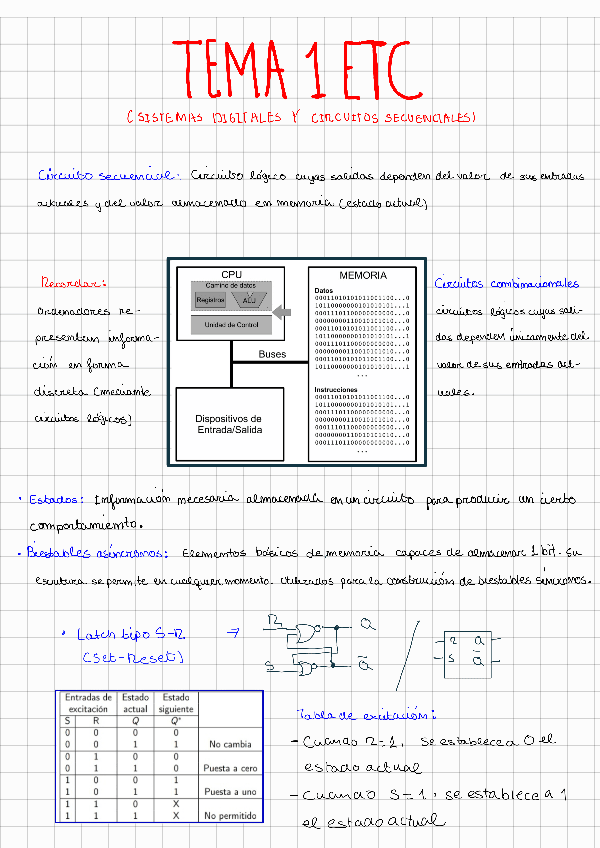 TEMA 1 ETC
(SISTEMAS DIGITALES Y CIRCUITOS SECUENCIALES)
Circuito secuencial: Circuito lógico cuyas salidas dependen del valor de sus entradas
actuales y del valor almacenado en memoria (estado actual)
Recordar:
ordenadores re-
presentan informa-
ción en forma
discreta (mediante
circuitos lógicos)
CPU
Camino de datos
Registros
ALU
Unidad de Control
Buses
Dispositivos de
Entrada/Salida
MEMORIA
Datos
0001101010101100 1100...0
Instrucciones
Circuitos combinacionales
circuitos lógicos cuyas sali-
das dependen únicamente del
valor de sus entradas act-
uales.
· Estados: Información necesaria almacenada en un circuito para producir un cierto
comportamiento.
· Biestables asíncronos: Elementos básicos de memoria capaces de almacenar 1 bit. Su
escritura se permite en cualquier momento. Utilizados para la construcción de biestables síncronos.
· Latch tipo S-R →
(Set-Reset)
R Q
S Q̅
R Q
S Q̅
Entradas de Estado Estado
excitación actual siguiente
S R Q Q*
0 0 0 0
0 0 1 1 No cambia
0 1 0 0
0 1 1 0 Puesta a cero
1 0 0 1
1 0 1 1 Puesta a uno
1 1 0 X
1 1 1 X No permitido
Tabla de excitación:
- Cuando R=1, se establece a 0 el
estado actual
- Cuando S=1, se establece a 1
el estado actual